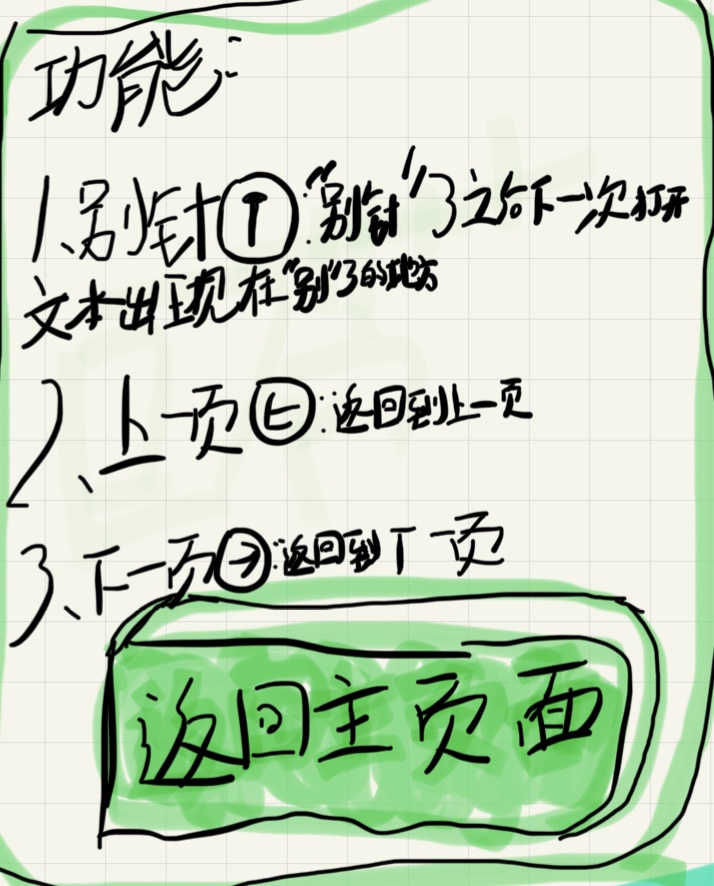 功能:
1、别针:“别针”了之后下一次打开
文本出现在“别”了的地方
2、上一页:返回到上一页
3、下一页:返回到下一页
返回主页面